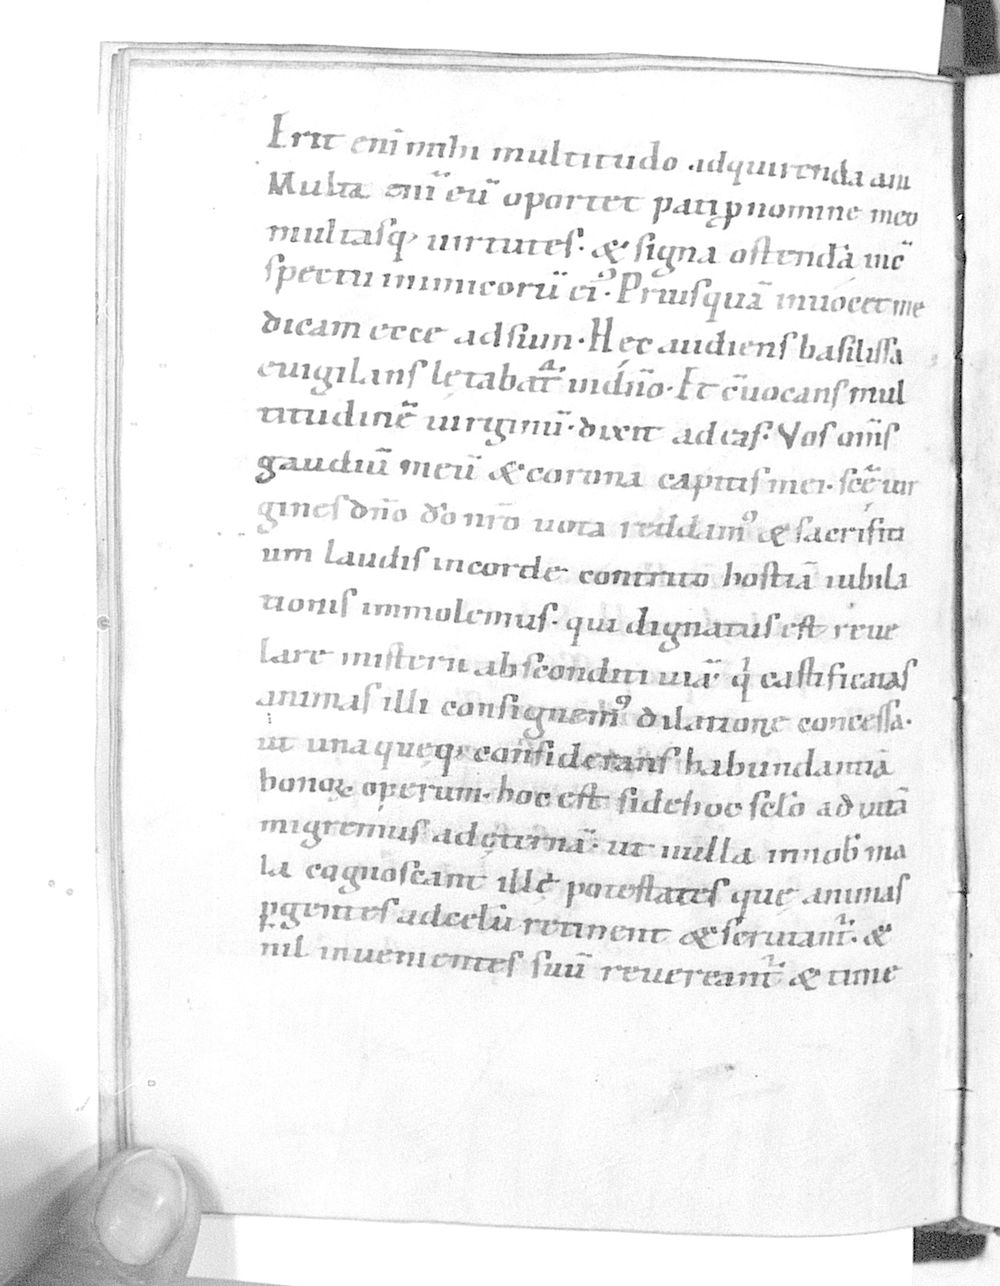 Erit eni̅ mihi multitudo adquirenda aiu
Multa eni̅ eu̅ oportet pati ꝑ nomine meo
multasq; uirtutes. & signa ostenda̅ inc̅
spectu inimicoru̅ ei᾽. Priusqua̅ inuocet me
dicam ecce adsum. Hęc audiens basilissa
euigilans lętabat᷑ in dn̅o. Et c̅uocans mul
titudine̅ uirginu̅. dixit ad eas. Vos om̅s
gaudiu̅ meu̅ & corona capitis mei. sc̅ę uir
gines dn̅o do̅ nr̅o uota reddam᾽ & sacrifici
um laudis incorde contrito hostia̅ iubila
tionis immolemus. qui dignatus est reue
lare misterii absconditi uia̅ q̍ castificatas
animas illi consignem᾽ dilatione concessa.
ut una queq; considerans habundantia̅
bonoꝝ operum. hoc est side hoc sc̅lo ad uita̅
migremus adęterna̅. ut nulla innob̅ ma
la cognoscant illę potestates que animas
ꝑgentes adcelu̅ retinent & seruiant᷑. &
nil inuenientes suu̅ reuereant᷑ & time